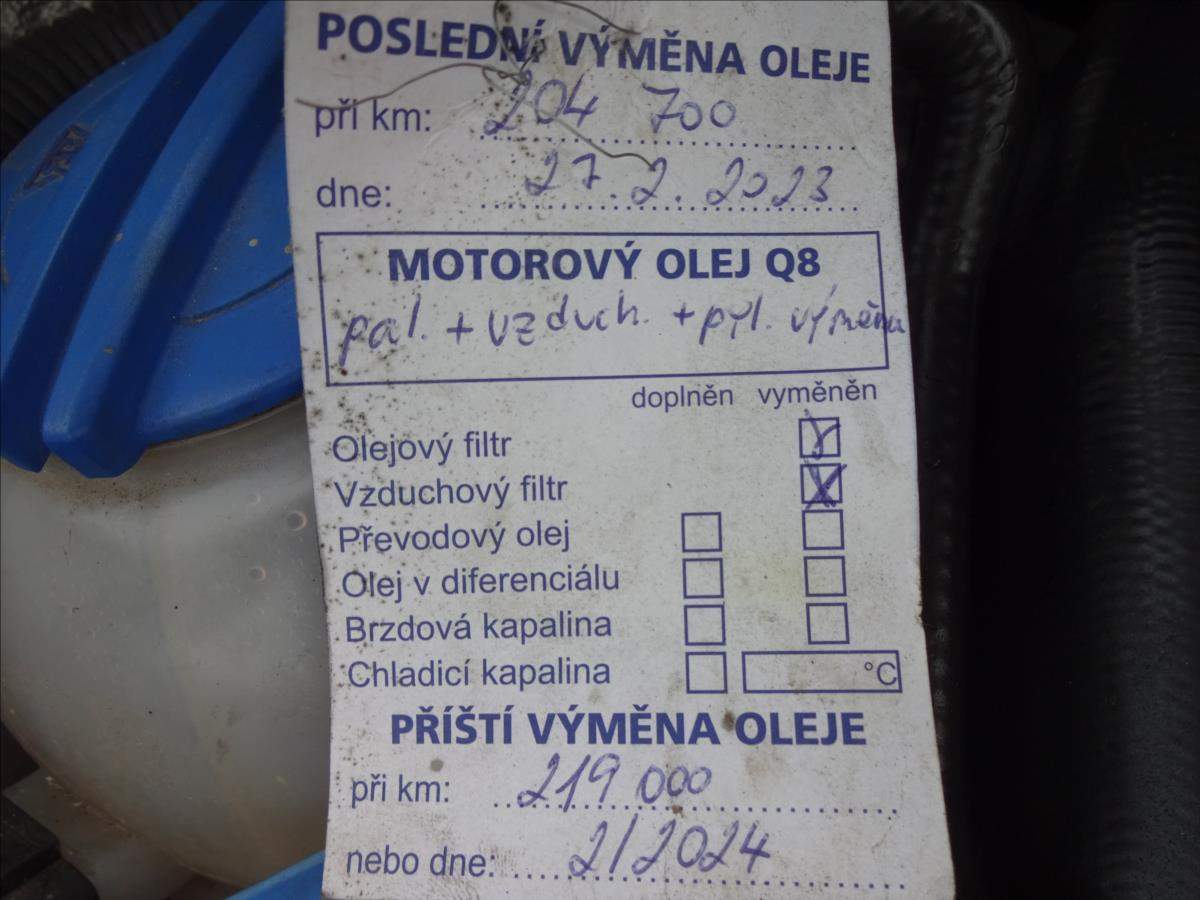 POSLEDNÍ VÝMĚNA OLEJE
při km: 204 700
dne: 27.2.2023
MOTOROVÝ OLEJ Q8
pal. + vzduch. + pyl. výměna
doplněn vyměněn
Olejový filtr
Vzduchový filtr
Převodový olej
Olej v diferenciálu
Brzdová kapalina
Chladicí kapalina °C
PŘÍŠTÍ VÝMĚNA OLEJE
při km: 219 000
nebo dne: 2/2024